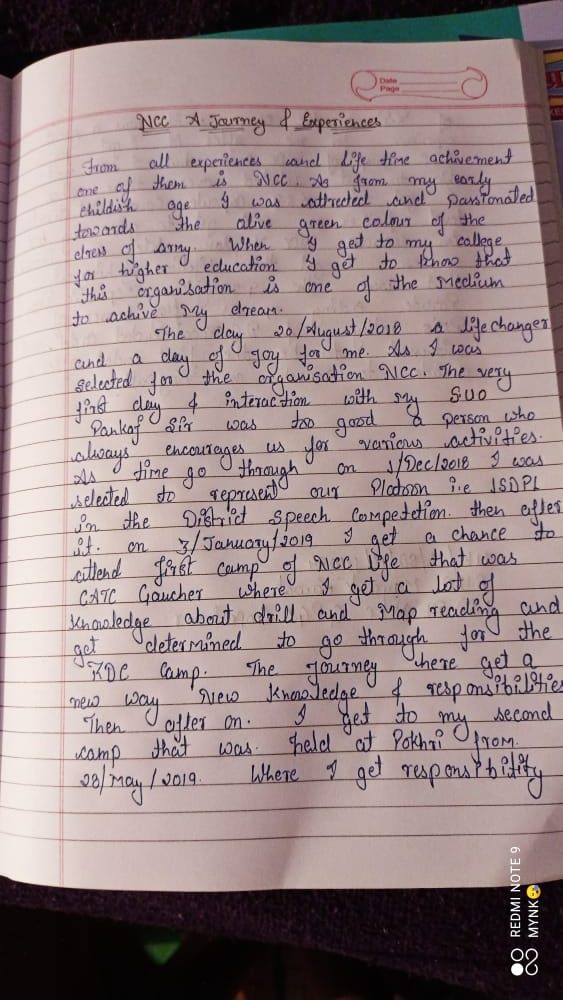 Date
Page
NCC A Journey & Experiences
From all experiences and life time achivement
one of them is NCC. As from my early
childish age I was attrected and passionated
towards the alive green colour of the
dress of army. When I get to my callege
for higher education I get to know that
this organisation is one of the Medium
to achive My dream.
The day 20/August/2018 a lifechanger
and a day of Joy for me. As I was
selected for the organisation NCC. The very
first day & interaction with my SUO
Pankaj Sir was too good a person who
always encourages us for various activities.
As time go through on 1/Dec/2018 I was
selected to represent our Platoon i.e 1SDPL
in the District Speech Competetion. then after
it. on 3/January/2019 I get a chance to
attend first camp of NCC life that was
CATC Gaucher where I get a lot of
Knowledge about drill and Map reading and
get determined to go through for the
RDC Camp. The Journey here get a
new way New Knowledge & responsibilities
Then after on. I get to my second
camp that was. held at Pokhri from.
28/May/2019. Where I get responsibility
REDMI NOTE 9
MYNK